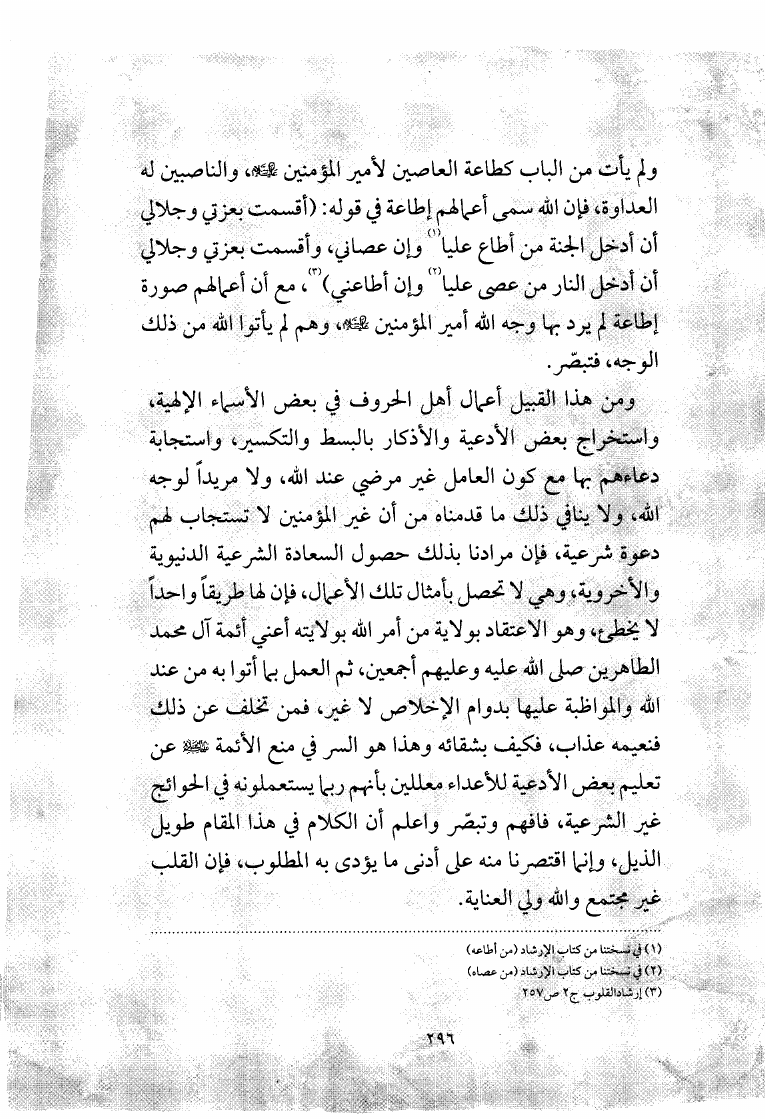 ولم يأت من الباب كطاعة العاصين لأمير المؤمنين عليه السلام، والناصبين له
العداوة، فإن الله سمى أعمالهم إطاعة في قوله: (أقسمت بعزتي وجلالي
أن أدخل الجنة من أطاع عليا(١) وإن عصاني، وأقسمت بعزتي وجلالي
أن أدخل النار من عصى عليا(٢) وإن أطاعني)(٣)، مع أن أعمالهم صورة
إطاعة لم يرد بها وجه الله أمير المؤمنين عليه السلام، وهم لم يأتوا الله من ذلك
الوجه، فتبصّر.
ومن هذا القبيل أعمال أهل الحروف في بعض الأسماء الإلهية،
واستخراج بعض الأدعية والأذكار بالبسط والتكسير، واستجابة
دعاءهم بها مع كون العامل غير مرضي عند الله، ولا مريداً لوجه
الله، ولا ينافي ذلك ما قدمناه من أن غير المؤمنين لا تستجاب لهم
دعوة شرعية، فإن مرادنا بذلك حصول السعادة الشرعية الدنيوية
والأخروية، وهي لا تحصل بأمثال تلك الأعمال، فإن لها طريقاً واحداً
لا يخطئ، وهو الاعتقاد بولاية من أمر الله بولايته أعني أئمة آل محمد
الطاهرين صلى الله عليه وعليهم أجمعين، ثم العمل بما أتوا به من عند
الله والمواظبة عليها بدوام الإخلاص لا غير، فمن تخلف عن ذلك
فنعيمه عذاب، فكيف بشقائه وهذا هو السر في منع الأئمة عليهم السلام عن
تعليم بعض الأدعية للأعداء معللين بأنهم ربما يستعملونه في الحوائج
غير الشرعية، فافهم وتبصّر واعلم أن الكلام في هذا المقام طويل
الذيل، وإنما اقتصرنا منه على أدنى ما يؤدى به المطلوب، فإن القلب
غير مجتمع والله ولي العناية.
(١) في نسختنا من كتاب الإرشاد (من أطاعه)
(٢) في نسختنا من كتاب الإرشاد (من عصاه)
(٣) إرشادالقلوب ج٢ ص٢٥٧
٢٩٦